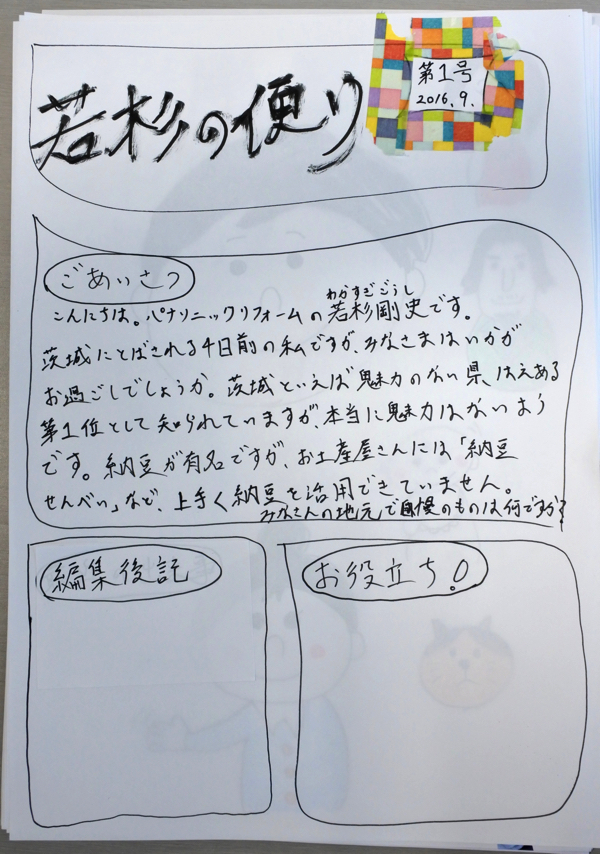 若杉の便り
第1号
2016.9.
ごあいさつ
わかすぎごうし
こんにちは。パナソニックリフォームの若杉剛史です。
茨城にとばされる4日前の私ですが、みなさまはいかが
お過ごしでしょうか。茨城といえば魅力のない県、はえある
第1位として知られていますが、本当に魅力はないよう
です。納豆が有名ですが、お土産屋さんには「納豆
せんべい」など、上手く納豆を活用できていません。
みなさんの地元で自慢のものは何ですか?
編集後記
お役立ち!